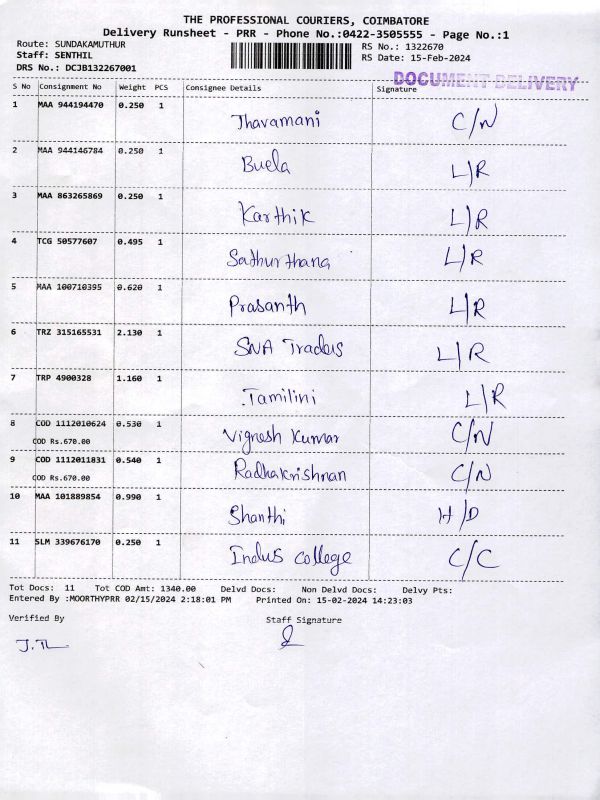 THE PROFESSIONAL COURIERS, COIMBATORE
Delivery Runsheet - PRR - Phone No.:0422-3505555 - Page No.:1
Route: SUNDAKAMUTHUR RS No.: 1322670
Staff: SENTHIL RS Date: 15-Feb-2024
DRS No.: DCJB132267001
DOCUMENT DELIVERY
S No Consignment No Weight PCS Consignee Details Signature
1 MAA 944194470 0.250 1 Thavamani C/N
2 MAA 944146784 0.250 1 Buela L/R
3 MAA 863265869 0.250 1 Karthik L/R
4 TCG 50577607 0.495 1 Sathurthana L/R
5 MAA 100710395 0.620 1 Prasanth L/R
6 TRZ 315165531 2.130 1 SNA Trades L/R
7 TRP 4900328 1.160 1 Tamilini L/R
8 COD 1112010624 0.530 1 Vignesh Kumar C/N
COD Rs.670.00
9 COD 1112011831 0.540 1 Radhakrishnan C/N
COD Rs.670.00
10 MAA 101889854 0.990 1 Shanthi H/D
11 SLM 339676170 0.250 1 Indus college C/C
Tot Docs: 11 Tot COD Amt: 1340.00 Delvd Docs: Non Delvd Docs: Delvy Pts:
Entered By :MOORTHYPRR 02/15/2024 2:18:01 PM Printed On: 15-02-2024 14:23:03
Verified By Staff Signature